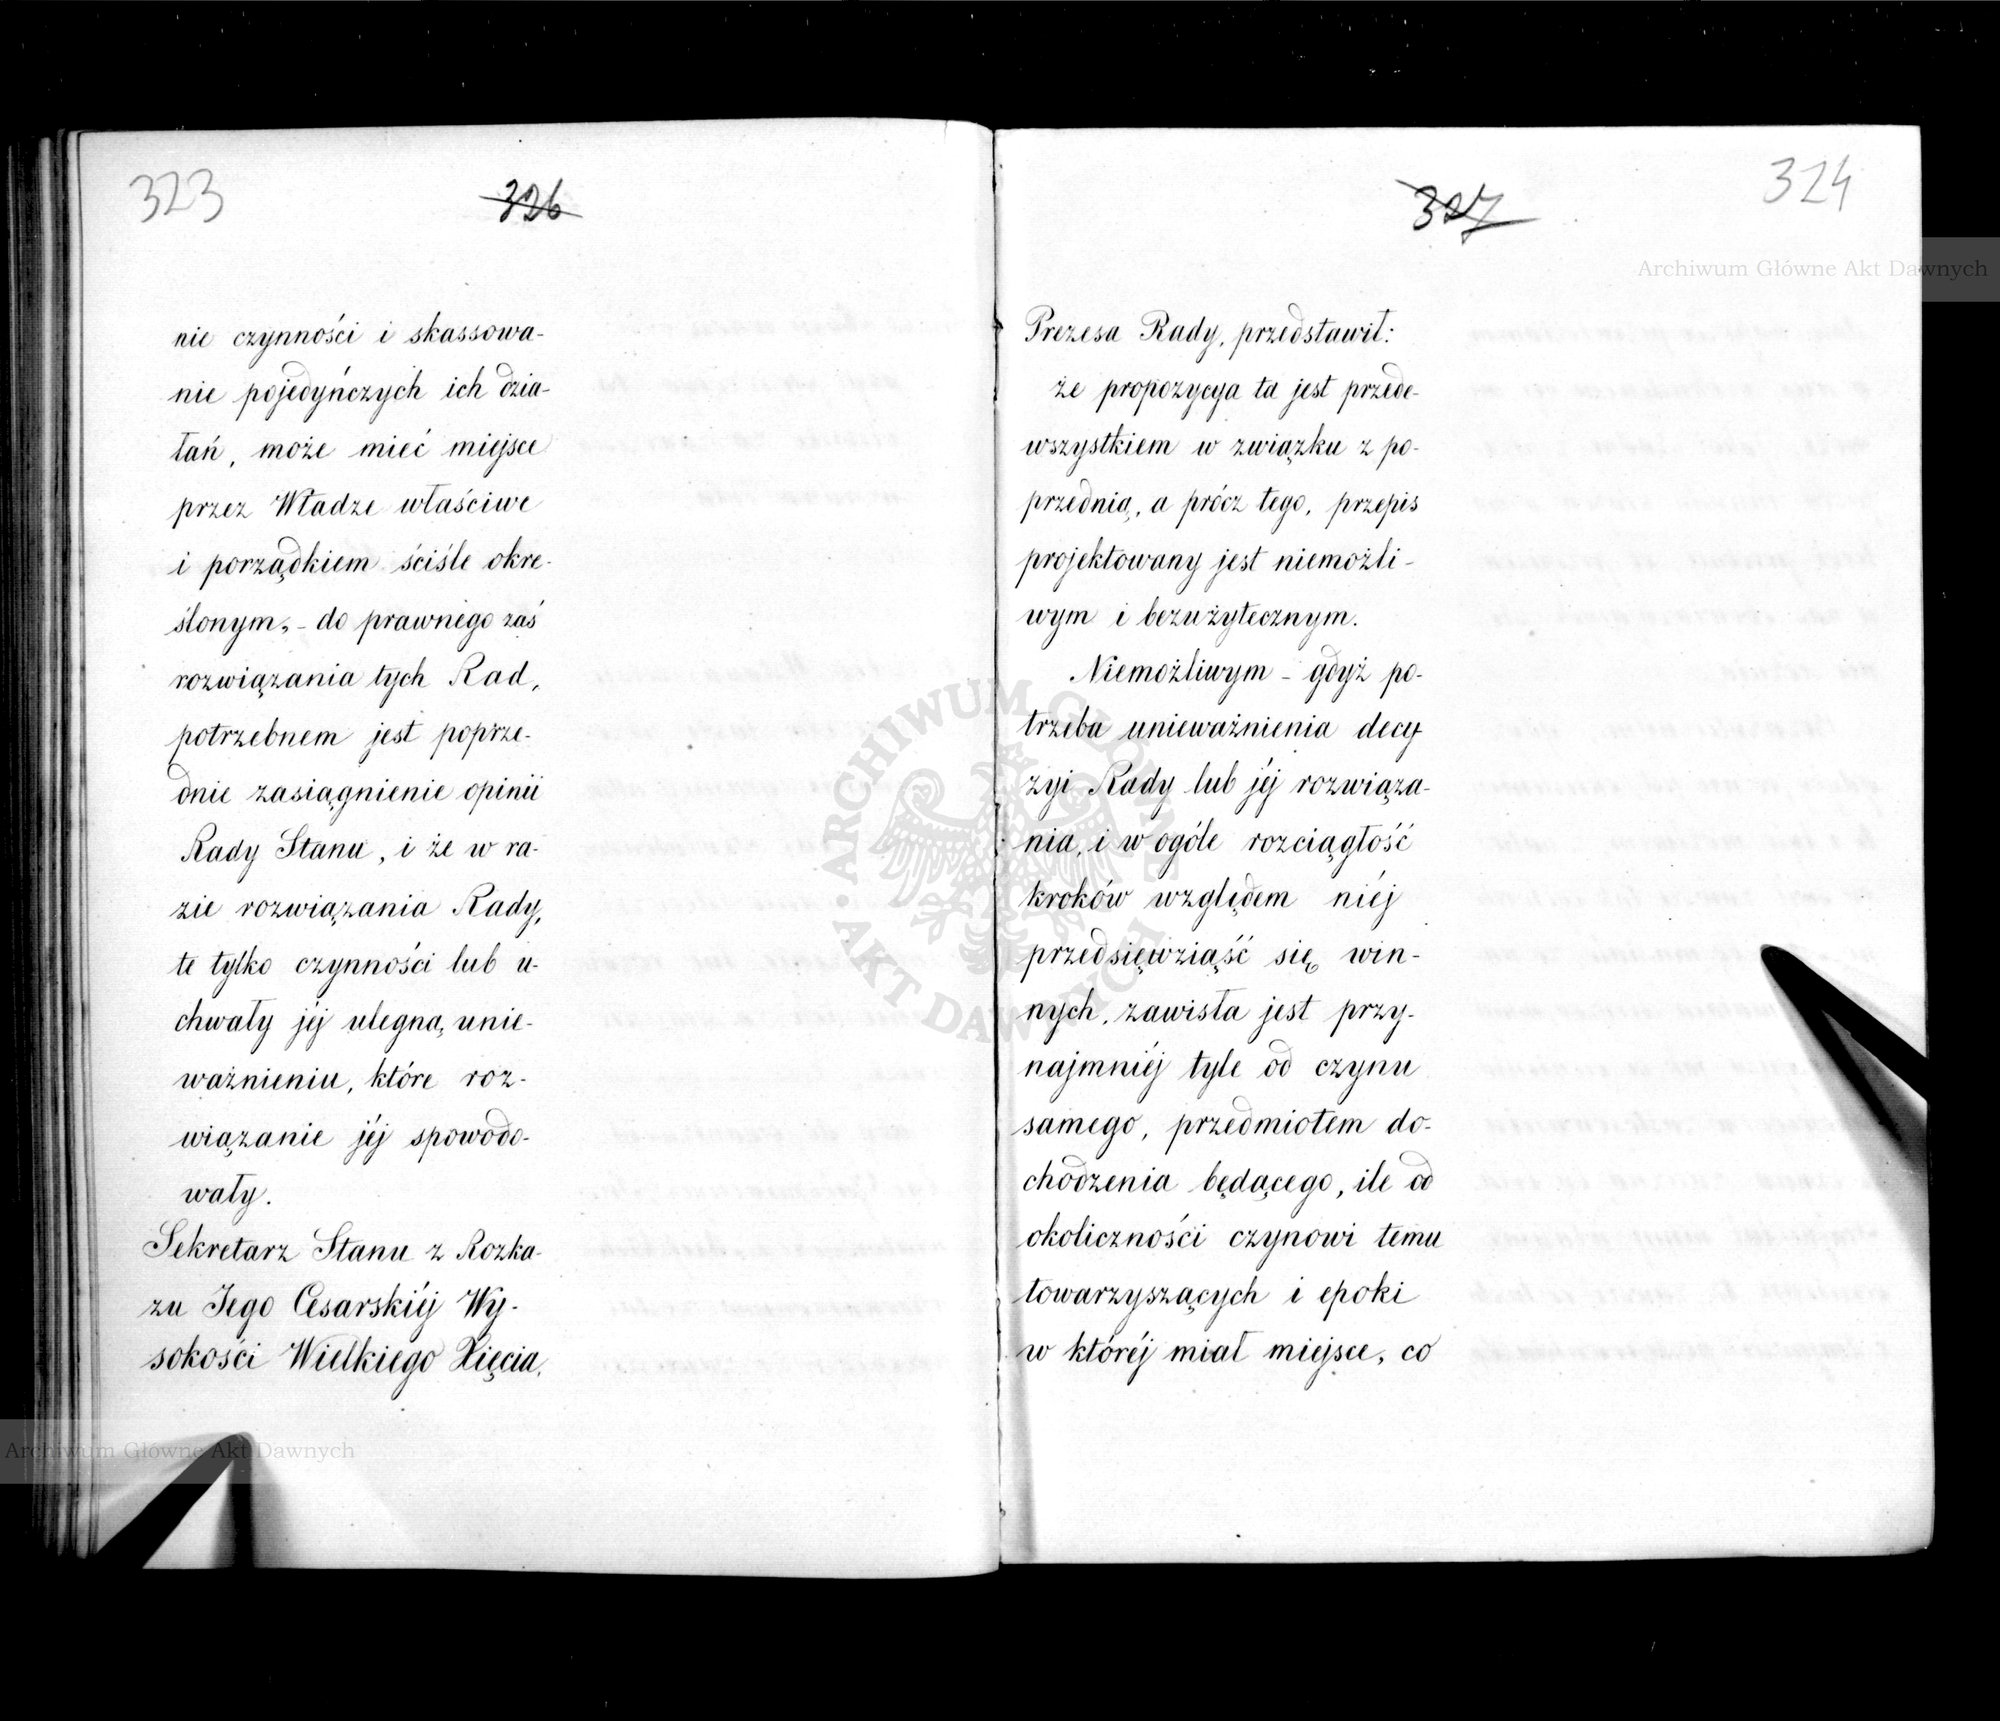 323
326
nie czynności i skassowa-
nie pojedyńczych ich dzia-
łań, może mieć miejsce
przez Władze właściwe
i porządkiem ściśle okre-
ślonym, - do prawnego zaś
rozwiązania tych Rad,
potrzebnem jest poprze-
dnie zasiągnienie opinii
Rady Stanu, i że w ra-
zie rozwiązania Rady,
te tylko czynności lub u-
chwały jéj ulegną unie-
ważnieniu, które roz-
wiązanie jéj spowodo-
wały.
Sekretarz Stanu z Rozka-
zu Jego Cesarskiéj Wy-
sokości Wielkiego Xięcia,
327
324
Prezesa Rady, przedstawił:
że propozycya ta jest przede-
wszystkiem w związku z po-
przednią, a prócz tego, przepis
projektowany jest niemożli-
wym i bezużytecznym.
Niemożliwym - gdyż po-
trzeba unieważnienia decy-
zyi Rady lub jéj rozwiąza-
nia, i w ogóle rozciągłość
kroków względem niéj
przedsięwziąść się win-
nych, zawisła jest przy-
najmniéj tyle od czynu
samego, przedmiotem do-
chodzenia będącego, ile od
okoliczności czynowi temu
towarzyszących i epoki
w któréj miał miejsce, co
Archiwum Główne Akt Dawnych
ARCHIWUM GŁÓWNE AKT DAWNYCH
Archiwum Główne Akt Dawnych